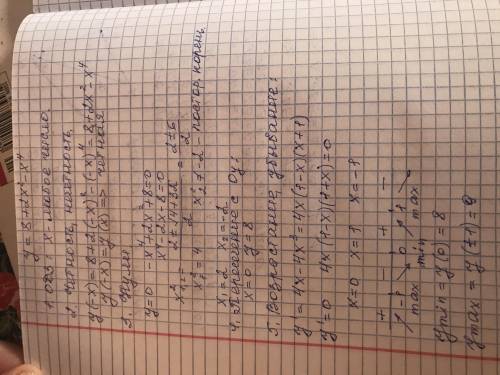 y = 8 + 2x² - x⁴
1. ОДЗ: x - любое число.
2. Четность, нечетность
y(-x) = 8 + 2(-x)² - (-x)⁴ = 8 + 2x² - x⁴
y(-x) = y(x) => четная
3. Нули
y=0 -x⁴+2x²+8=0
x⁴-2x-8=0
x²₁,₂ = 2±√4+32 / 2 = 2±6 / 2
x² = 4 x² ≠ -2 - постор. корень
x₁=2 x₂=-2
4. Пересечение с Oy:
x=0 y=8
5. Возрастание, убывание:
y' = 4x - 4x² = 4x(1-x)(x+1)
y' = 0 4x(1-x)(1+x)=0
x=0 x=1 x=-1
+ - + -
-1 0 1
max min max
y min = y(0) = 8
y max = y(±1) = 9